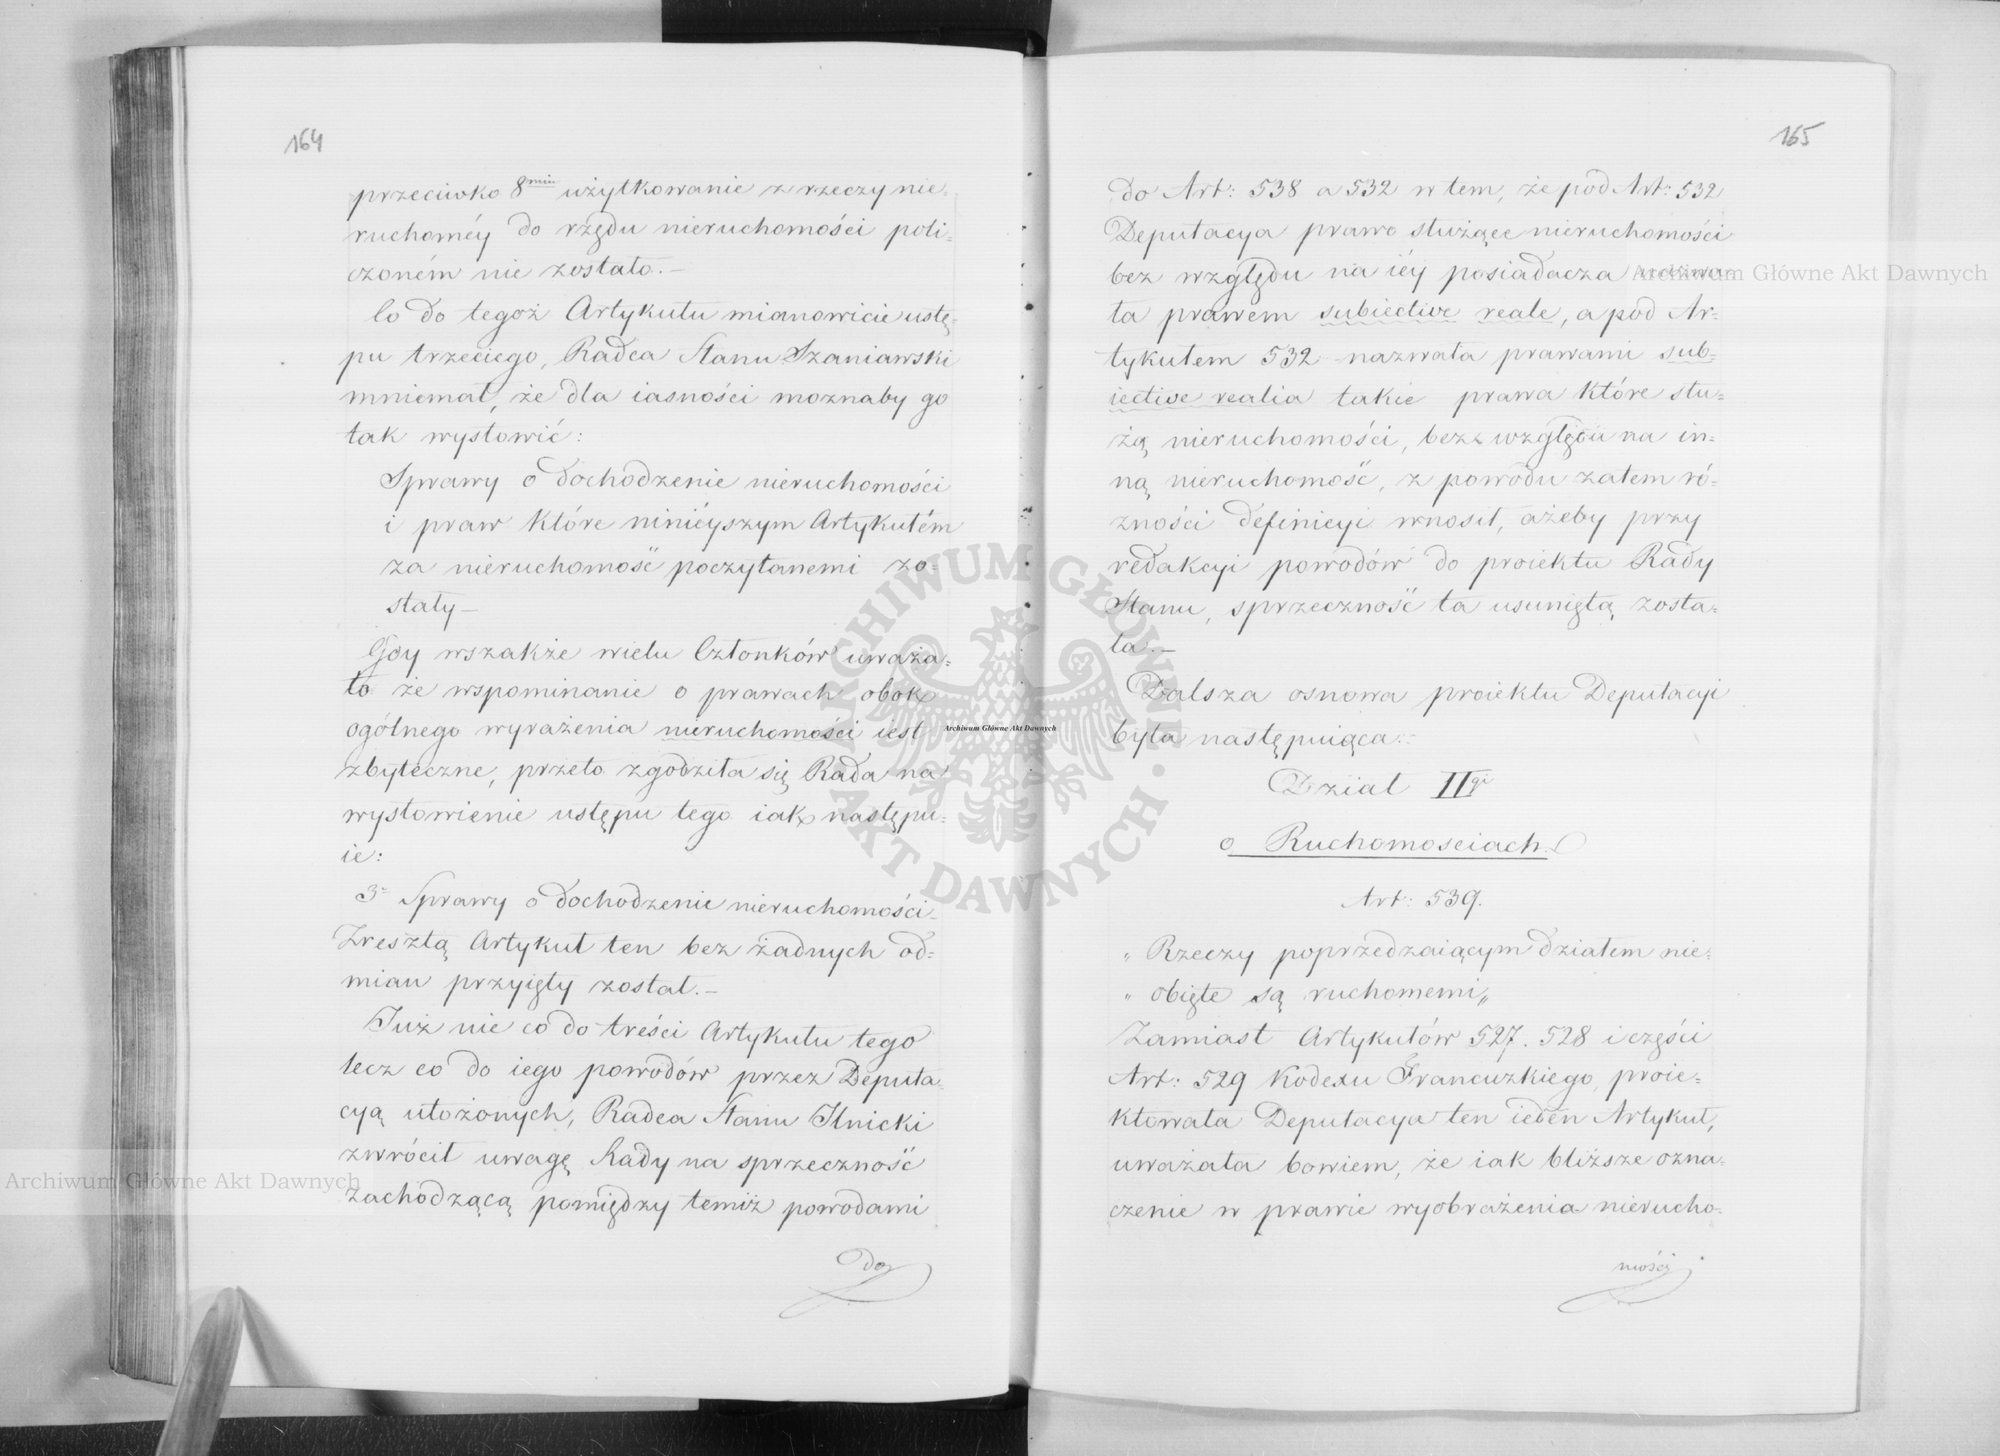 164
przeciwko 8min użytkowanie z rzeczy nie-
ruchoméy do rzędu nieruchomości poli-
czoném nie zostało.—
Co do tegoż Artykułu mianowicie ustę-
pu trzeciego, Radca Stanu Szaniawski
mniemał, że dla iasności moznaby go
tak wysłowić:
Sprawy o dochodzenie nieruchomości
i praw które ninieyszym Artykułém
za nieruchomość poczytanemi zo-
stały—
Gdy wszakże wielu Członków uważa-
ło że wspominanie o prawach obok
ogólnego wyrażenia nieruchomości iest
zbyteczne, przeto zgodziła się Rada na
wysłowienie ustępu tego iak następu-
ie:
3- Sprawy o dochodzenie nieruchomości-
Zresztą Artykuł ten bez żadnych od-
mian przyięty został.—
Już nie co do treści Artykułu tego
lecz co do iego powodów przez Deputa-
cyą ułożonych, Radca Stanu Ilnicki
zwrócił uwagę Rady na sprzeczność
zachodzącą pomiędzy temiż powodami
do
165
do Art: 538 a 532 w tem, że pod Art: 532
Deputacya prawo służące nieruchomości
bez względu na iéy posiadacza nazwa-
ła prawem subiective reale, a pod Ar-
tykułem 532 nazwała prawami sub-
iective realia takie prawa które słu-
żą nieruchomości, bez względu na in-
ną nieruchomość, z powodu zatem ró-
żności definicyi wnosił, ażeby przy
redakcyi powodów do proiektu Rady
Stanu, sprzeczność ta usuniętą zosta-
ła.—
Dalsza osnowa proiektu Deputacyi
była następuiąca:
Dział IIgi
o Ruchomosciach.
Art: 539.
„ Rzeczy poprzedzaiącym działem nie-
„ obięte są ruchomemi„
Zamiast Artykułów 527. 528 i części
Art: 529 Kodexu Francuzkiego, proie-
ktowała Deputacya ten ieden Artykuł,
uważała bowiem, że iak bliższe ozna-
czenie w prawie wyobrażenia nierucho-
mości
Archiwum Główne Akt Dawnych
Archiwum Główne Akt Dawnych
Archiwum Główne Akt Dawnych
ARCHIWUM GŁÓWNE AKT DAWNYCH